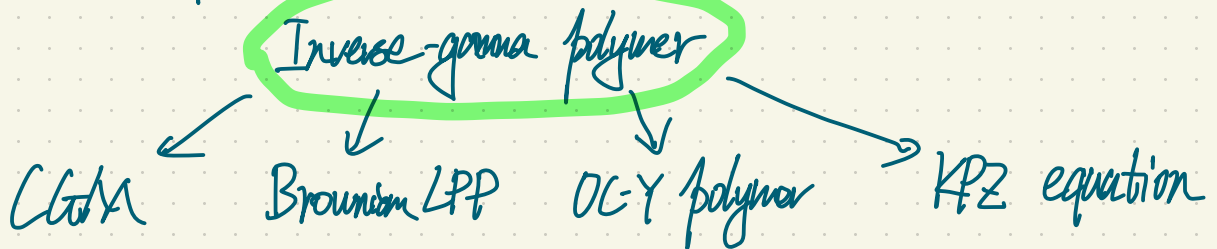 Inverse-gamma polymer
CGM Brownian LPP OC-Y polymer KPZ equation